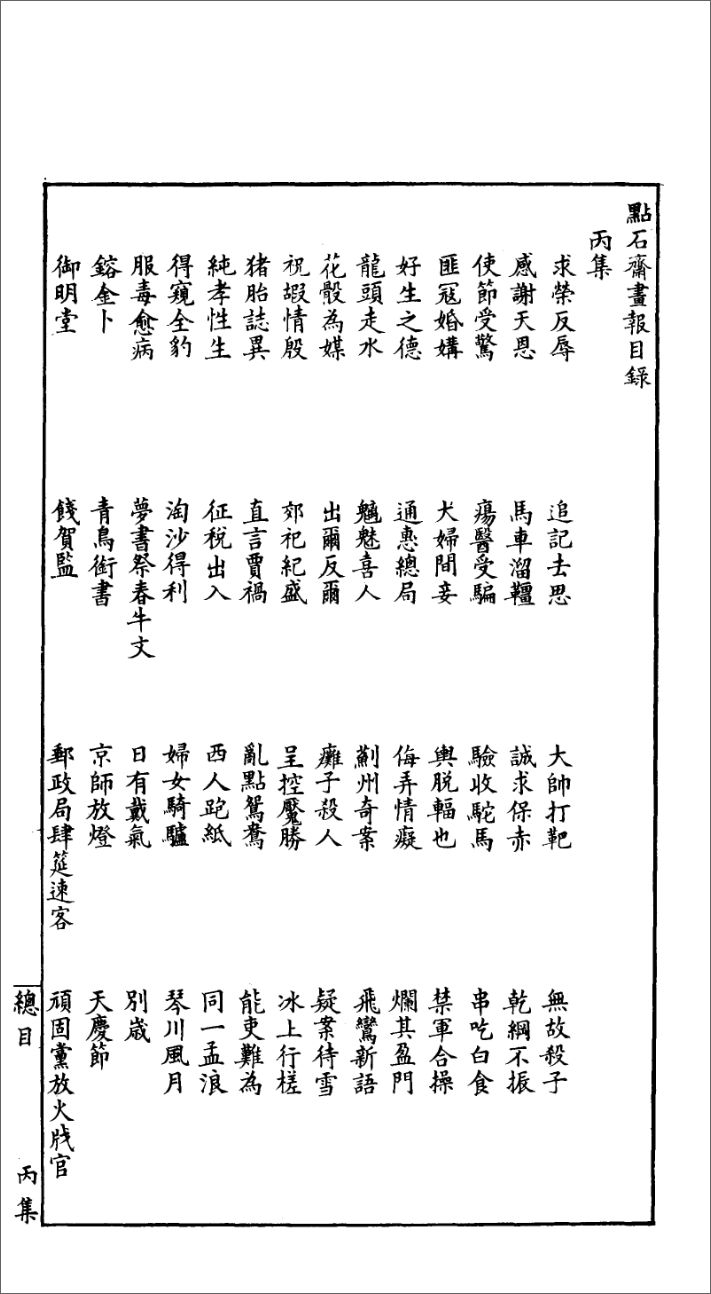 點石齋畫報目錄
丙集
求榮反辱　追記去思　大帥打靶　無故殺子
感謝天恩　馬車溜韁　誠求保赤　乾綱不振
使節受驚　瘍醫受騙　驗收駝馬　串吃白食
匪冦婚媾　犬婦間妾　輿脱輻也　禁軍合操
好生之德　通惠總局　侮弄情癡　爛其盈門
龍頭走水　魑魅喜人　薊州奇案　飛鸞新語
花骰為媒　出爾反爾　癱子殺人　疑案待雪
祝嘏情殷　郊祀紀盛　呈控魘勝　冰上行槎
猪胎誌異　直言賈禍　亂點鴛鴦　能吏難為
純孝性生　征稅出入　西人跑紙　同一孟浪
得窺全豹　淘沙得利　婦女騎驢　琴川風月
服毒愈病　夢書祭春牛文　日有戴氣　別歲
鎔金卜　青鳥銜書　京師放燈　天慶節
御明堂　餞賀監　郵政局肆筵速客　頑固黨放火戕官
總目　丙集